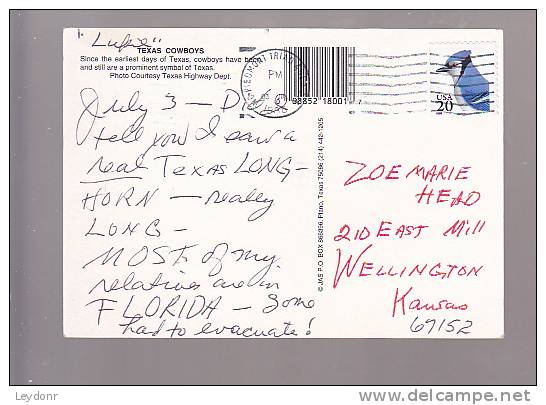 "Lupie"
TEXAS COWBOYS
Since the earliest days of Texas, cowboys have been
and still are a prominent symbol of Texas.
Photo Courtesy Texas Highway Dept.
PIEDMONT TRIAD
PM
1998
98852 18001 7
USA
20
July 3 - D
tell you I saw a
real TEXAS LONG-
HORN - really
LONG -
MOST of my
relatives are in
FLORIDA - some
had to evacuate!
© JAS P.O. BOX 866996, Plano, Texas 75086 (214) 442-1205
ZOE MARIE
HEAD
210 EAST Mill
WELLINGTON
Kansas
67152
Leydonr
www.delcampe.net